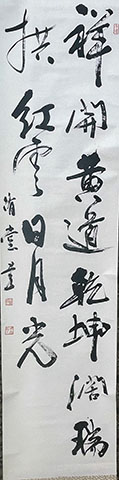 祥開黃道乾坤濶瑞
拱紅雲日月光
消堂